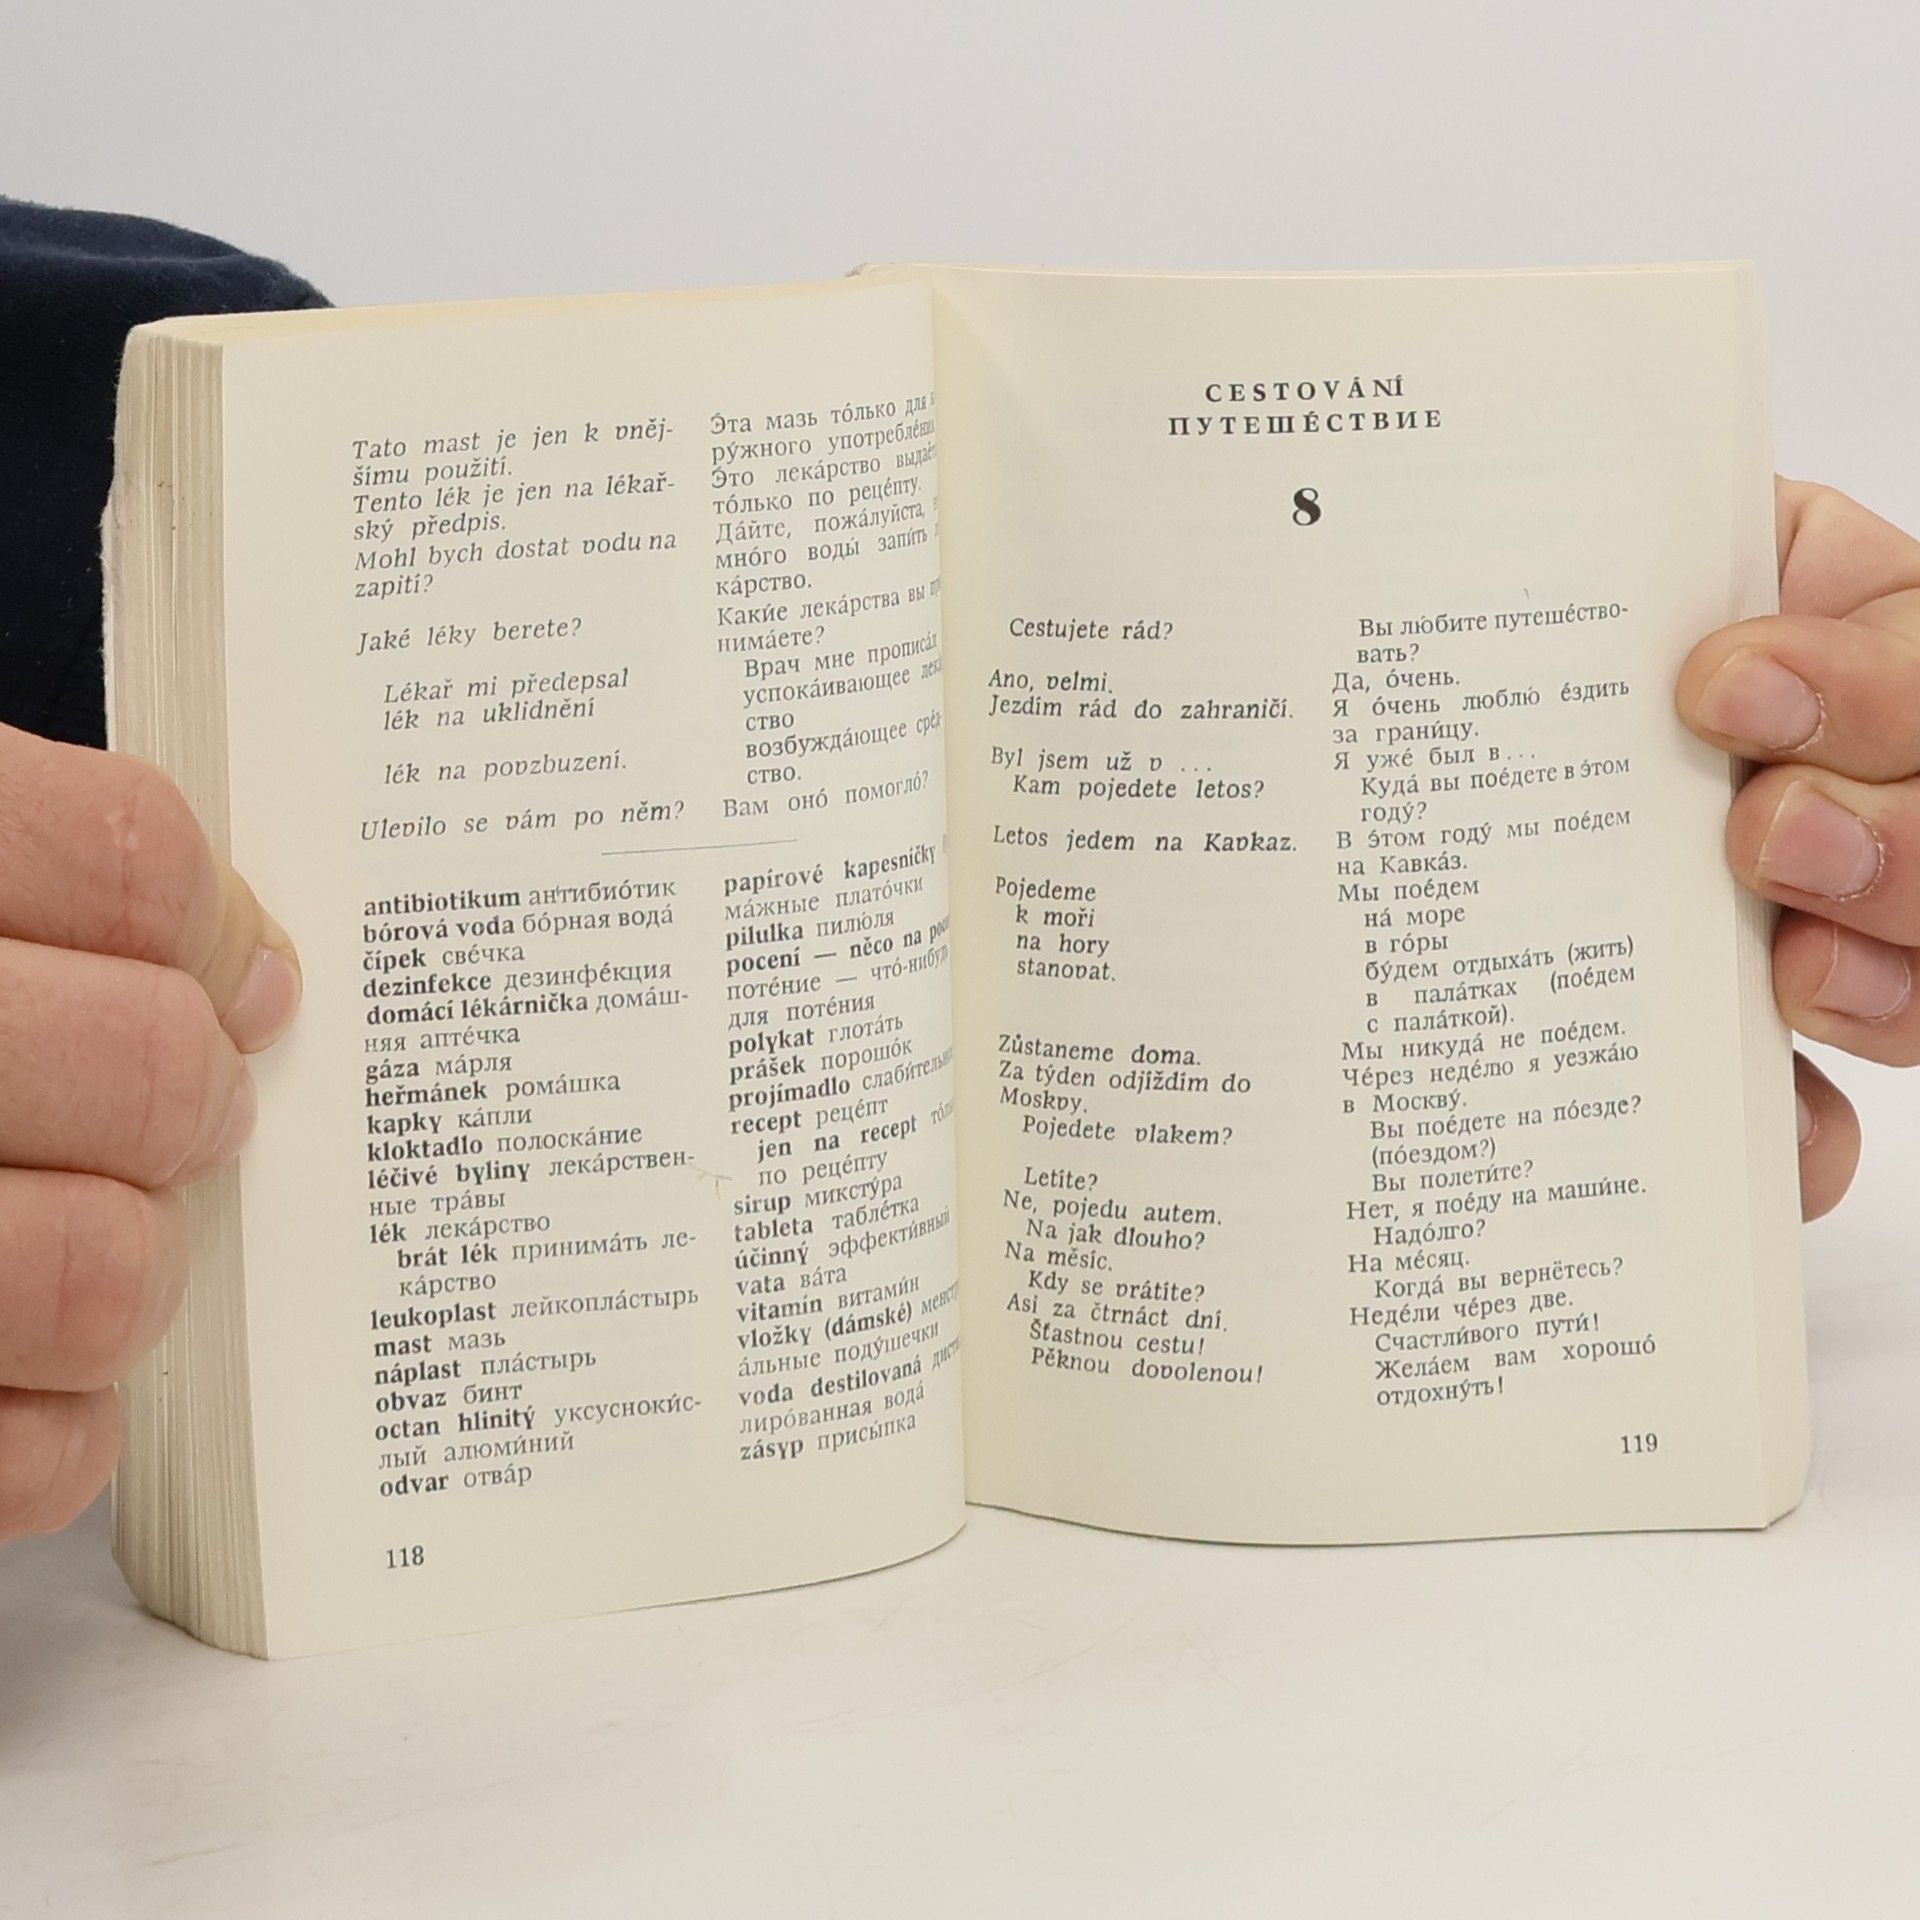 Tato mast je jen k vněj-
šímu použití.
Tento lék je jen na lékař-
ský předpis.
Mohl bych dostat vodu na
zapití?
Jaké léky berete?
Lékař mi předepsal
lék na uklidnění
lék na povzbuzení.
Ulevilo se vám po něm?
Э́та мазь то́лько для
ру́жного
Э́то лека́рство
то́лько по реце́пту.
Да́йте, пожа́луйста,
мно́го воды́ запи́ть
ка́рство.
Каки́е лека́рства вы
нима́ете?
Врач мне прописа́л
успока́ивающее
ство
возбужда́ющее сре́д-
ство.
Вам оно́ помогло́?
antibiotikum антибио́тик
bórová voda бо́рная вода́
čípek све́чка
dezinfekce дезинфе́кция
domácí lékárnička дома́ш-
няя апте́чка
gáza ма́рля
heřmánek рома́шка
kapky ка́пли
kloktadlo полоска́ние
léčivé byliny лека́рствен-
ные тра́вы
lék лека́рство
brát lék принима́ть ле-
ка́рство
leukoplast лейкопла́стырь
mast мазь
náplast пла́стырь
obvaz бинт
octan hlinitý уксусноки́с-
лый алюми́ний
odvar отва́р
papírové kapesníčky
ма́жные плато́чки
pilulka пилю́ля
pocení — něco na
поте́ние — что́-нибудь
для поте́ния
polykat глота́ть
prášek порошо́к
projímadlo
recept реце́пт
jen na recept
по реце́пту
sirup миксту́ра
tableta табле́тка
účinný эффекти́вный
vata ва́та
vitamín витами́н
vložky (dámské)
а́льные поду́шечки
voda destilovaná
лиро́ванная вода́
zásyp присы́пка
118
CESTOVÁNÍ
ПУТЕШЕ́СТВИЕ
8
Cestujete rád?
Ano, velmi.
Jezdím rád do zahraničí.
Byl jsem už v ...
Kam pojedete letos?
Letos jedem na Kavkaz.
Pojedeme
k moři
na hory
stanovat.
Zůstaneme doma.
Za týden odjíždím do
Moskvy.
Pojedete vlakem?
Letíte?
Ne, pojedu autem.
Na jak dlouho?
Na měsíc.
Kdy se vrátíte?
Asi za čtrnáct dní.
Šťastnou cestu!
Pěknou dovolenou!
Вы лю́бите путеше́ство-
вать?
Да, о́чень.
Я о́чень люблю́ е́здить
за грани́цу.
Я уже́ был в...
Куда́ вы пое́дете в э́том
году́?
В э́том году́ мы пое́дем
на Кавка́з.
Мы пое́дем
на́ море
в го́ры
бу́дем отдыха́ть (жить)
в пала́тках (пое́дем
с пала́ткой).
Мы никуда́ не пое́дем.
Че́рез неде́лю я уезжа́ю
в Москву́.
Вы пое́дете на по́езде?
(по́ездом?)
Вы полети́те?
Нет, я пое́ду на маши́не.
Надо́лго?
На ме́сяц.
Когда́ вы вернётесь?
Неде́ли че́рез две.
Счастли́вого пути́!
Жела́ем вам хорошо́
отдохну́ть!
119